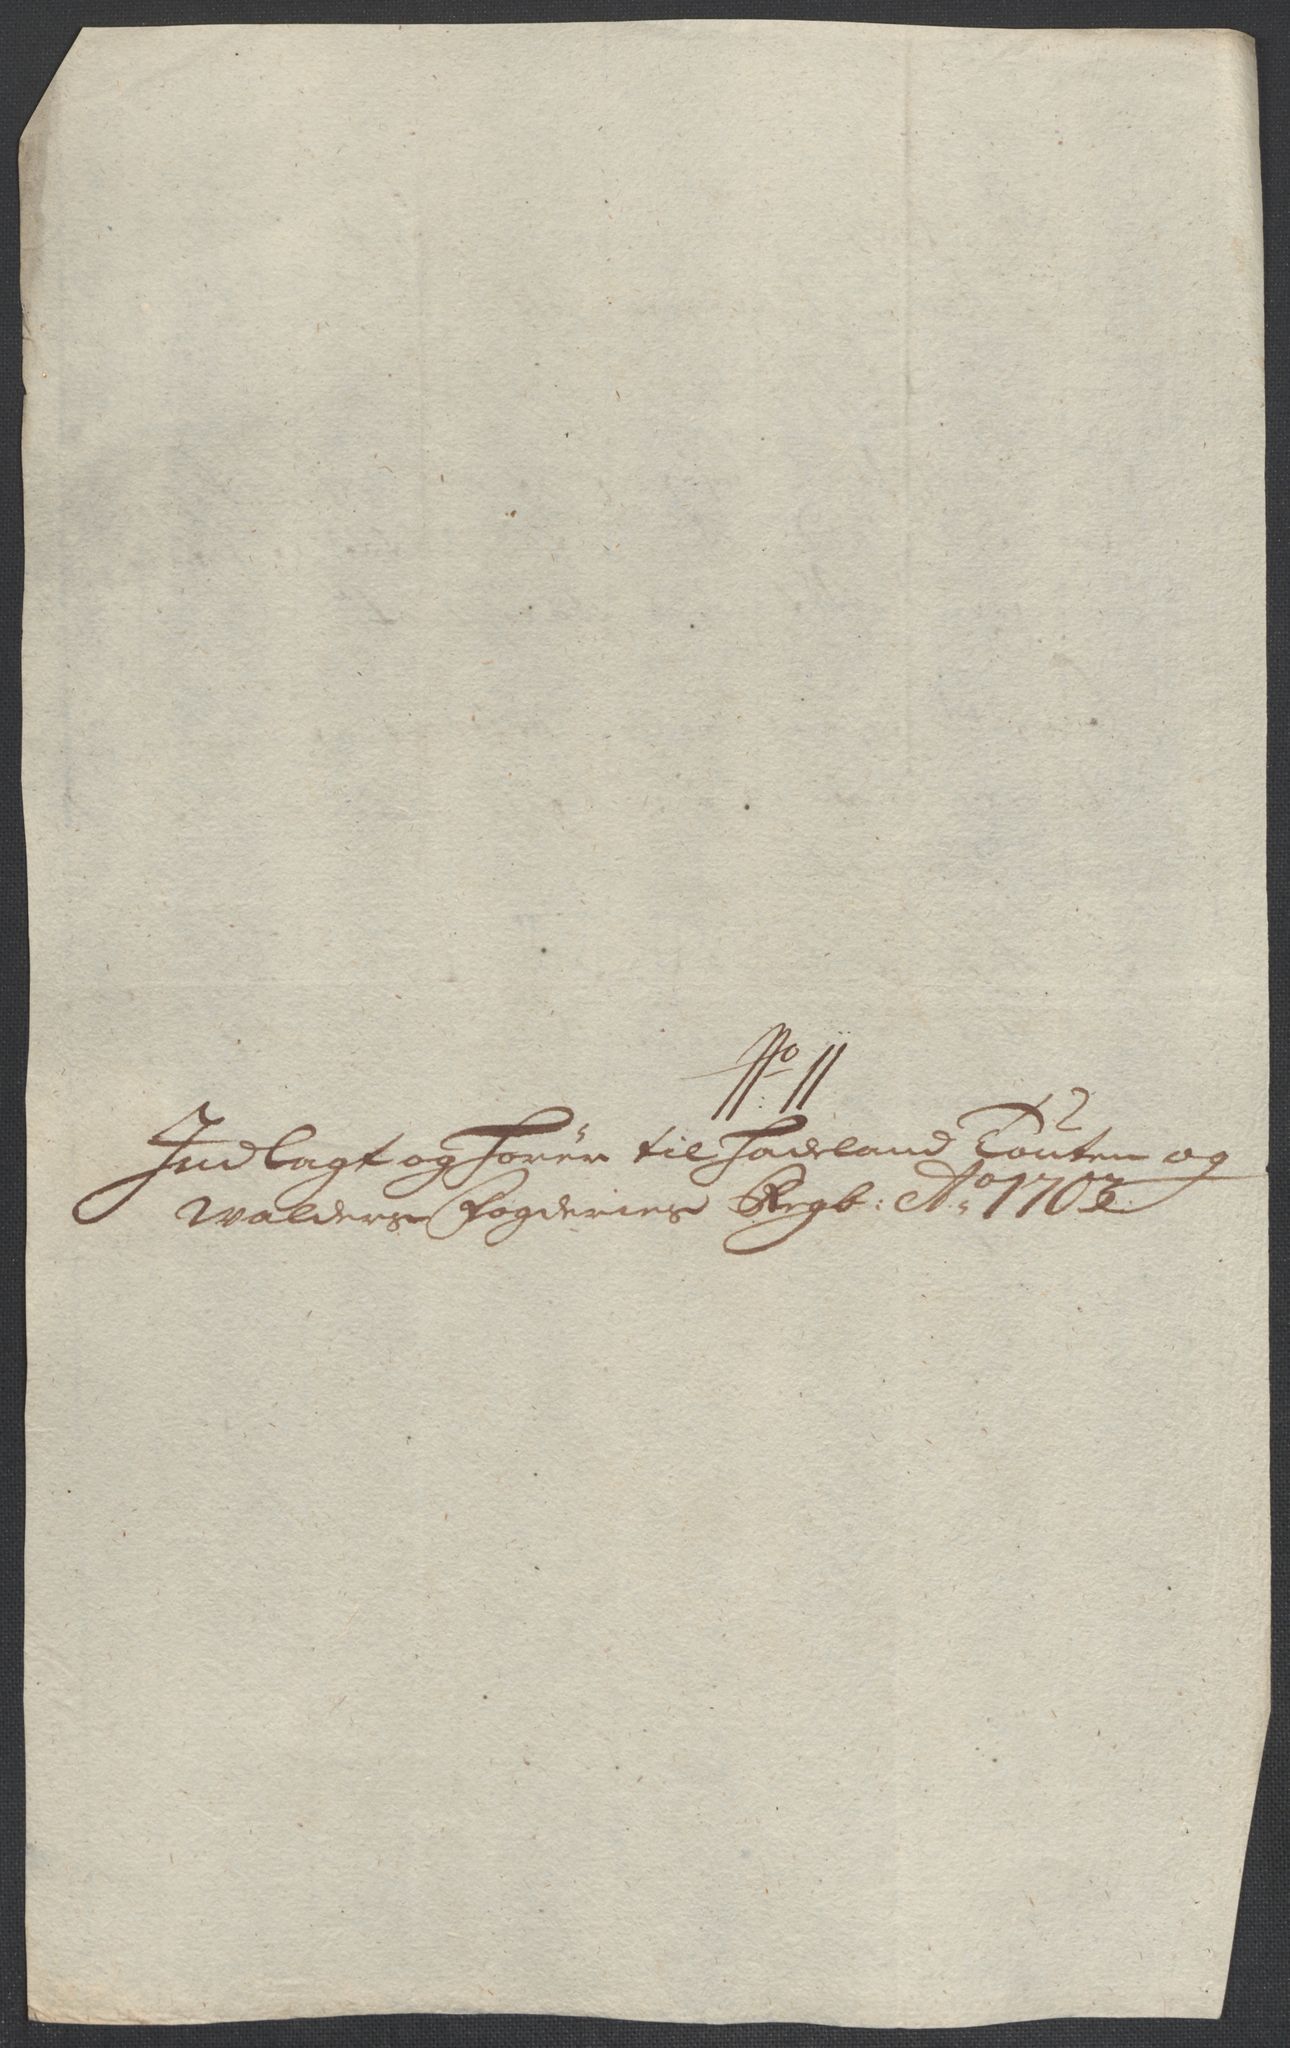 No 11
Indlagt og hører til Hadeland Touten og
Walders Fogderies Regb: Ao 1703